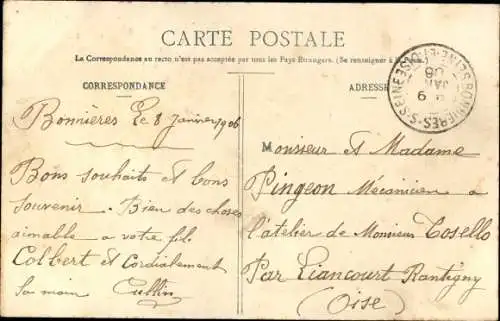 CARTE POSTALE
La Correspondance au recto n'est pas acceptée par tous les Pays Etrangers. (Se renseigner à
CORRESPONDANCE
ADRESSE
BONNIÈRES-S-SEINE
SEINE-ET-OISE
9
JANV
06
Bonnières le 8 Janvier 1906
Bons souhaits et bons
souvenir. Bien des choses
aimable a votre fils
Colbert et Cordialement
Sa main
Monsieur et Madame
Pingeon Mécanicien a
l'atelier de Monsieur Tosello
Par Liancourt Rantigny
(Oise)